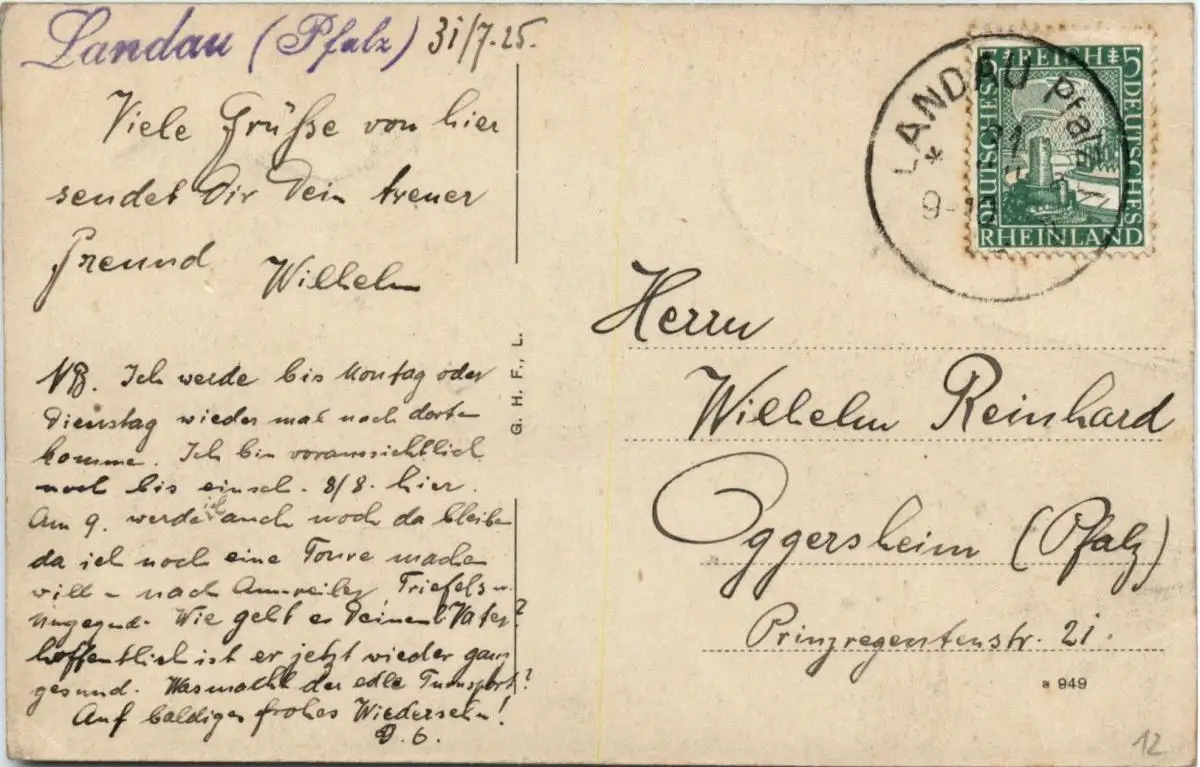 Landau (Pfalz) 31/7.25.
Viele Grüße von hier
sendet Dir Dein treuer
Freund Wilhelm
NB. Ich werde bis Montag oder
Dienstag wieder mal nach dorten
komme. Ich bin voraussichtlich
noch bis einsch. 8/8. hier.
Am 9. werde ich auch noch da bleiben
da ich noch eine Toure machen
will – nach Annweiler Triefels u.
Umgegend. Wie geht es Deinem Vater?
hoffentlich ist er jetzt wieder ganz
gesund. Was macht der edle Turnsport?
Auf baldiges frohes Wiedersehn!
D. O.
G. H. F., L.
LANDAU Pfalz
31
9-10
5 REICH 5
DEUTSCHES
DEUTSCHES
RHEINLAND
Herrn
Wilhelm Reinhard
Oggersheim (Pfalz)
Prinzregentenstr. 21.
a 949
12